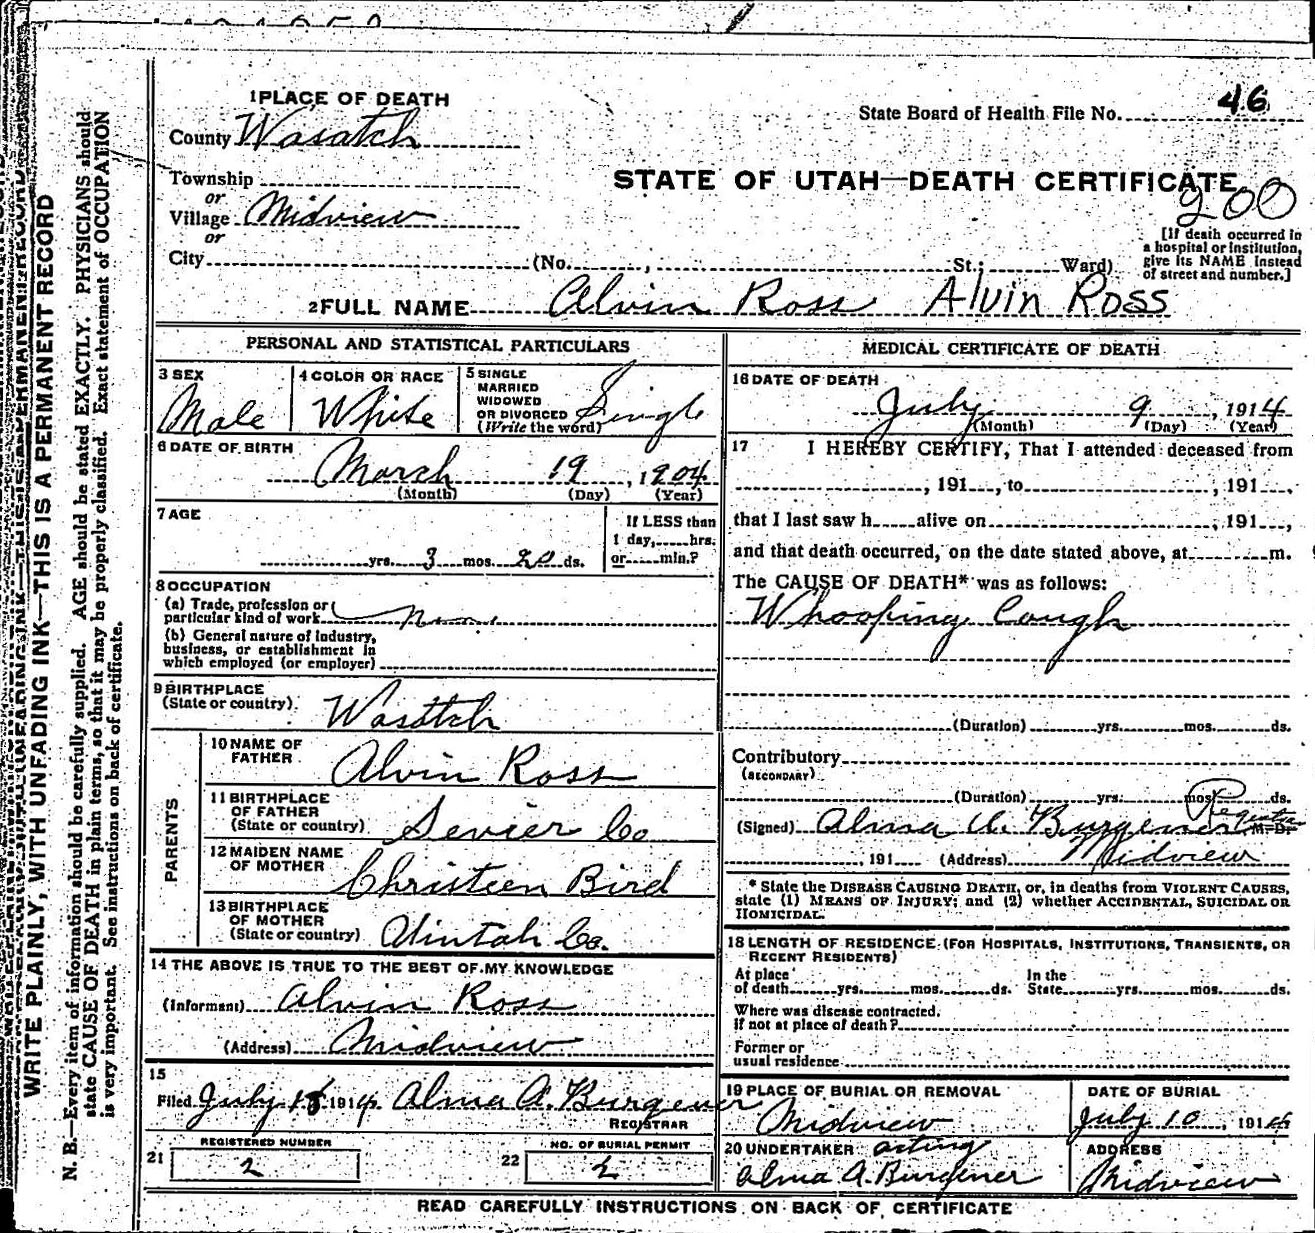 46
1 PLACE OF DEATH
State Board of Health File No.
County Wasatch
Township
STATE OF UTAH—DEATH CERTIFICATE
200
or
Village Midview
or
City (No. , St.; Ward)
[If death occurred in a hospital or institution, give its NAME instead of street and number.]
2 FULL NAME Alvin Ross Alvin Ross
PERSONAL AND STATISTICAL PARTICULARS
3 SEX
Male
4 COLOR OR RACE
White
5 SINGLE
MARRIED
WIDOWED
OR DIVORCED
(Write the word)
Single
6 DATE OF BIRTH
March 19, 1904
(Month) (Day) (Year)
7 AGE
yrs. 3 mos. 20 ds.
If LESS than
1 day, hrs.
or min.?
8 OCCUPATION
(a) Trade, profession or
particular kind of work
(b) General nature of industry,
business, or establishment in
which employed (or employer)
9 BIRTHPLACE
(State or country) Wasatch
PARENTS
10 NAME OF
FATHER Alvin Ross
11 BIRTHPLACE
OF FATHER
(State or country) Sevier Co
12 MAIDEN NAME
OF MOTHER Christeen Bird
13 BIRTHPLACE
OF MOTHER
(State or country) Uintah Co.
14 THE ABOVE IS TRUE TO THE BEST OF MY KNOWLEDGE
(Informant) Alvin Ross
(Address) Midview
15
Filed July 15 1914 Alma A. Burgener
REGISTRAR
21 REGISTERED NUMBER
2
22 NO. OF BURIAL PERMIT
2
MEDICAL CERTIFICATE OF DEATH
16 DATE OF DEATH
July 9, 1914
(Month) (Day) (Year)
17 I HEREBY CERTIFY, That I attended deceased from
, 191 , to , 191 ,
that I last saw h alive on , 191 ,
and that death occurred, on the date stated above, at m.
The CAUSE OF DEATH* was as follows:
Whooping Cough
(Duration) yrs. mos. ds.
Contributory
(SECONDARY)
(Duration) yrs. mos. ds.
(Signed) Alma A. Burgener M.D.
, 191 (Address) Midview
* State the DISEASE CAUSING DEATH, or, in deaths from VIOLENT CAUSES,
state (1) MEANS OF INJURY; and (2) whether ACCIDENTAL, SUICIDAL OR
HOMICIDAL.
18 LENGTH OF RESIDENCE (FOR HOSPITALS, INSTITUTIONS, TRANSIENTS, OR
RECENT RESIDENTS)
At place In the
of death yrs. mos. ds. State yrs. mos. ds.
Where was disease contracted.
If not at place of death?
Former or
usual residence
19 PLACE OF BURIAL OR REMOVAL
Midview
DATE OF BURIAL
July 10, 1914
20 UNDERTAKER acting
Alma A. Burgener
ADDRESS
Midview
READ CAREFULLY INSTRUCTIONS ON BACK OF CERTIFICATE
WRITE PLAINLY, WITH UNFADING INK—THIS IS A PERMANENT RECORD
N. B.—Every item of information should be carefully supplied. AGE should be stated EXACTLY. PHYSICIANS should
state CAUSE OF DEATH in plain terms, so that it may be properly classified. Exact statement of OCCUPATION
is very important. See instructions on back of certificate.